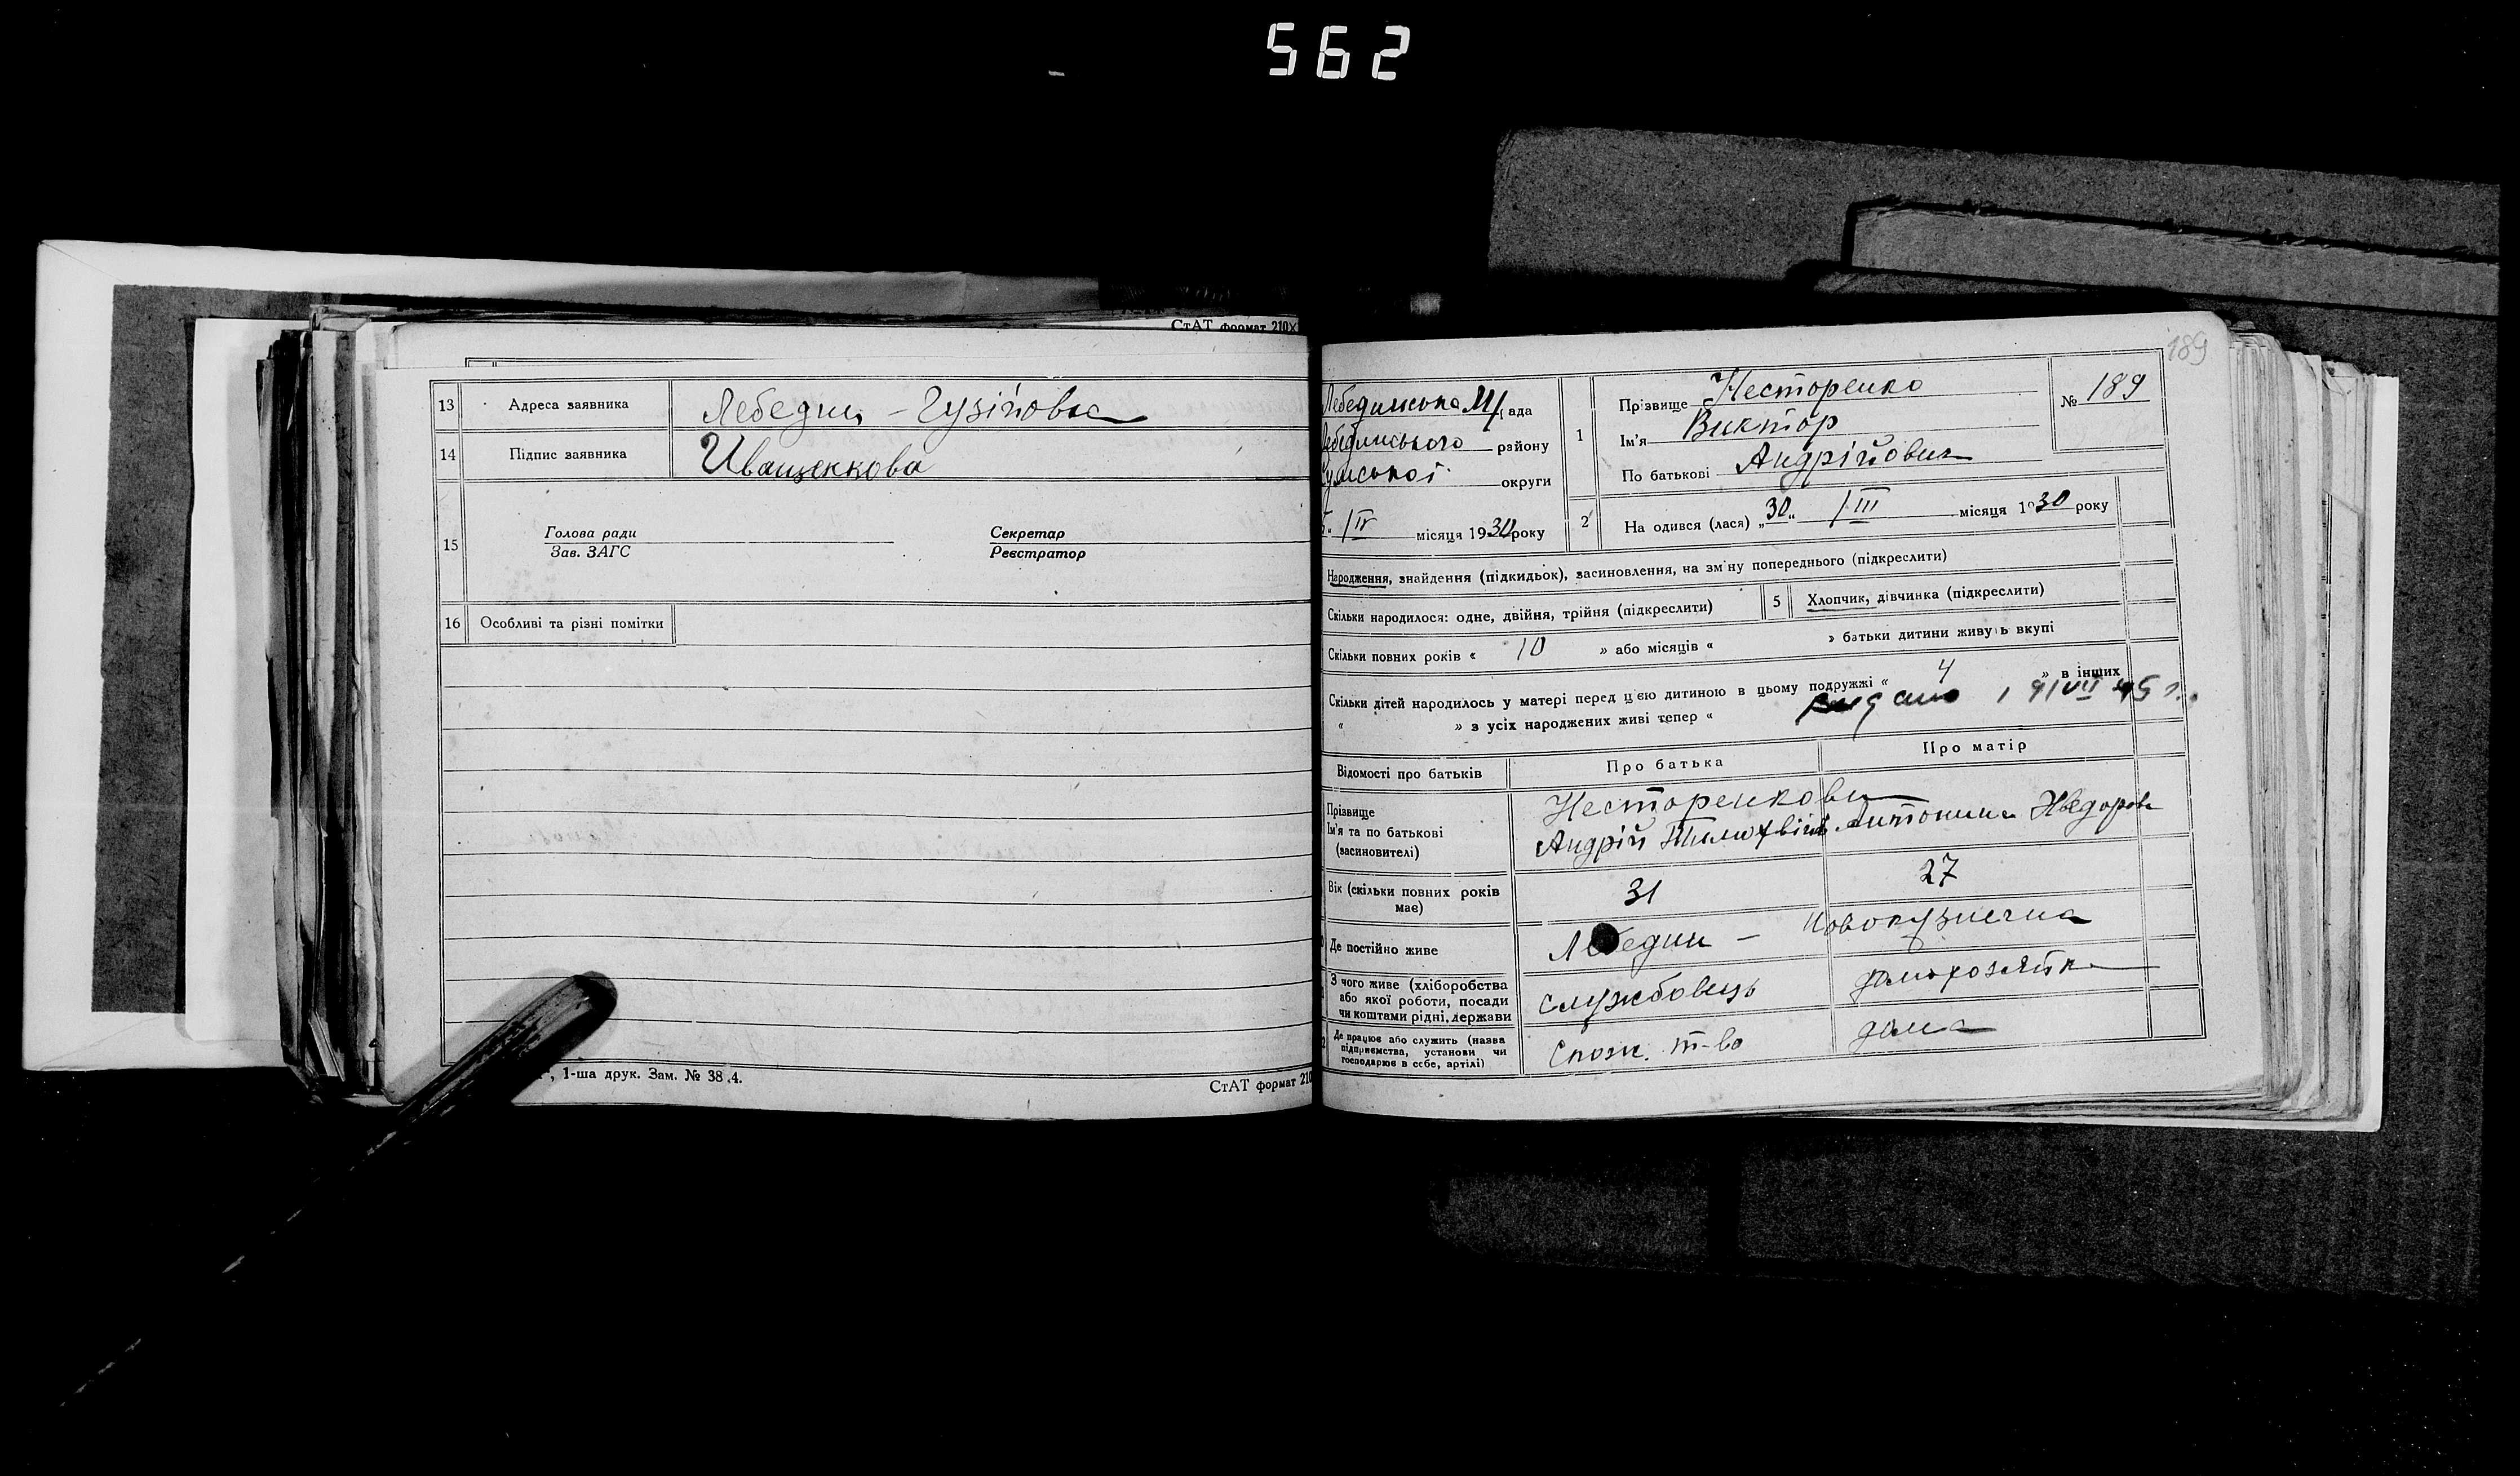 562
СтАТ формат 210Х
13 Адреса заявника Лебедин - Гузіповка
14 Підпис заявника Иващенкова
15 Голова ради
Зав. ЗАГС
Секретар
Реєстратор
16 Особливі та різні помітки
1-ша друк. Зам. № 38 4.
СтАТ формат 210
189
Лебединська М/рада
Лебединського району
Сумської округи
IV місяця 1930 року
1 Прізвище Несторенко
Ім'я Виктор
По батькові Андрійович
№ 189
2 На одився (лася) „30" III місяця 1930 року
Народження, знайдення (підкидьок), засиновлення, на зміну попереднього (підкреслити)
Скільки народилося: одне, двійня, трійня (підкреслити)
5 Хлопчик, дівчинка (підкреслити)
Скільки повних років « 10 » або місяців « » батьки дитини живуть вкупі
Скільки дітей народилось у матері перед цією дитиною в цьому подружжі « 4 » в інших
« » з усіх народжених живі тепер «
Відомості про батьків Про батька Про матір
Прізвище
Ім'я та по батькові
(засиновителі)
Несторенкови
Андрій Антонина
Вік (скільки повних років має) 31 27
Де постійно живе Лебедин - Новокузнечна
З чого живе (хліборобства
або якої роботи, посади
чи коштами рідні, держави
службовець домохозяйка
Де працює або служить (назва
підприємства, установи чи
господарює в себе, артілі)
Спож. т-во дома